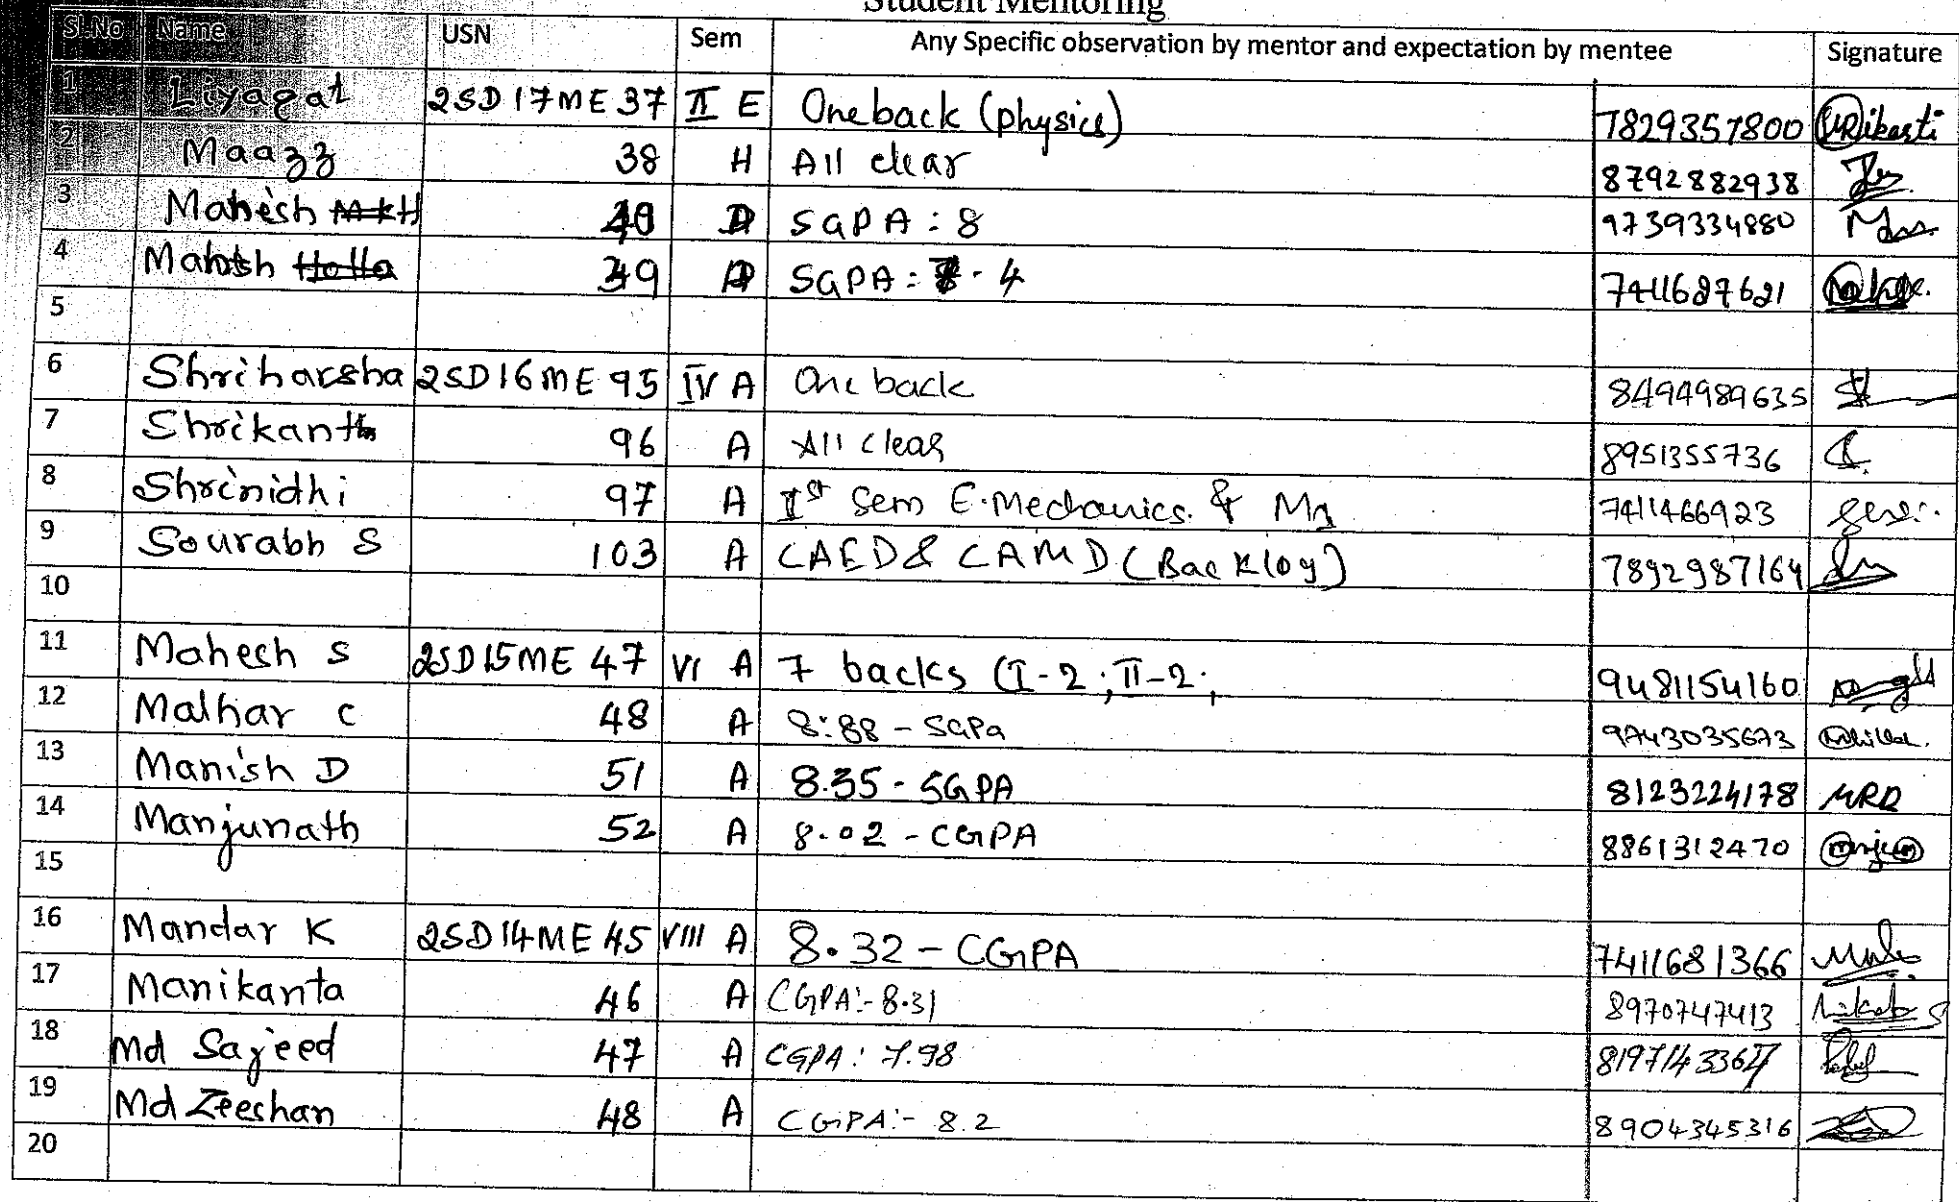 Student Mentoring
Sl.No Name USN Sem Any Specific observation by mentor and expectation by mentee Signature
1 Liyaqat 2SD17ME 37 II E One back (physics) 7829357800
2 Maazz 38 H All clear 8792882938
3 Mahesh 40 D SGPA : 8 9739334880
4 Mahesh Holla 39 D SGPA : . 4 7411627621
5
6 Shriharsha 2SD16ME 95 IV A One back 8494989635
7 Shrikanth 96 A All clear 8951355736
8 Shrinidhi 97 A Ist Sem E.Mechanics. & 7411466923
9 Sourabh S 103 A CAED & CAMD (Backlog) 7892987164
10
11 Mahesh S 2SD15ME 47 VI A 7 backs (I-2; II-2; 9481154160
12 Malhar C 48 A 8:88 - SGPa 9743035673
13 Manish D 51 A 8.35 - SGPA 8123224178 MRD
14 Manjunath 52 A 8.02 - CGPA 8861312470
15
16 Mandar K 2SD14ME 45 VIII A 8.32 - CGPA 7411681366
17 Manikanta 46 A CGPA:- 8.31 8970747413
18 Md Sajeed 47 A CGPA : 7.98
19 Md Zeeshan 48 A CGPA:- 8.2 8904345316
20